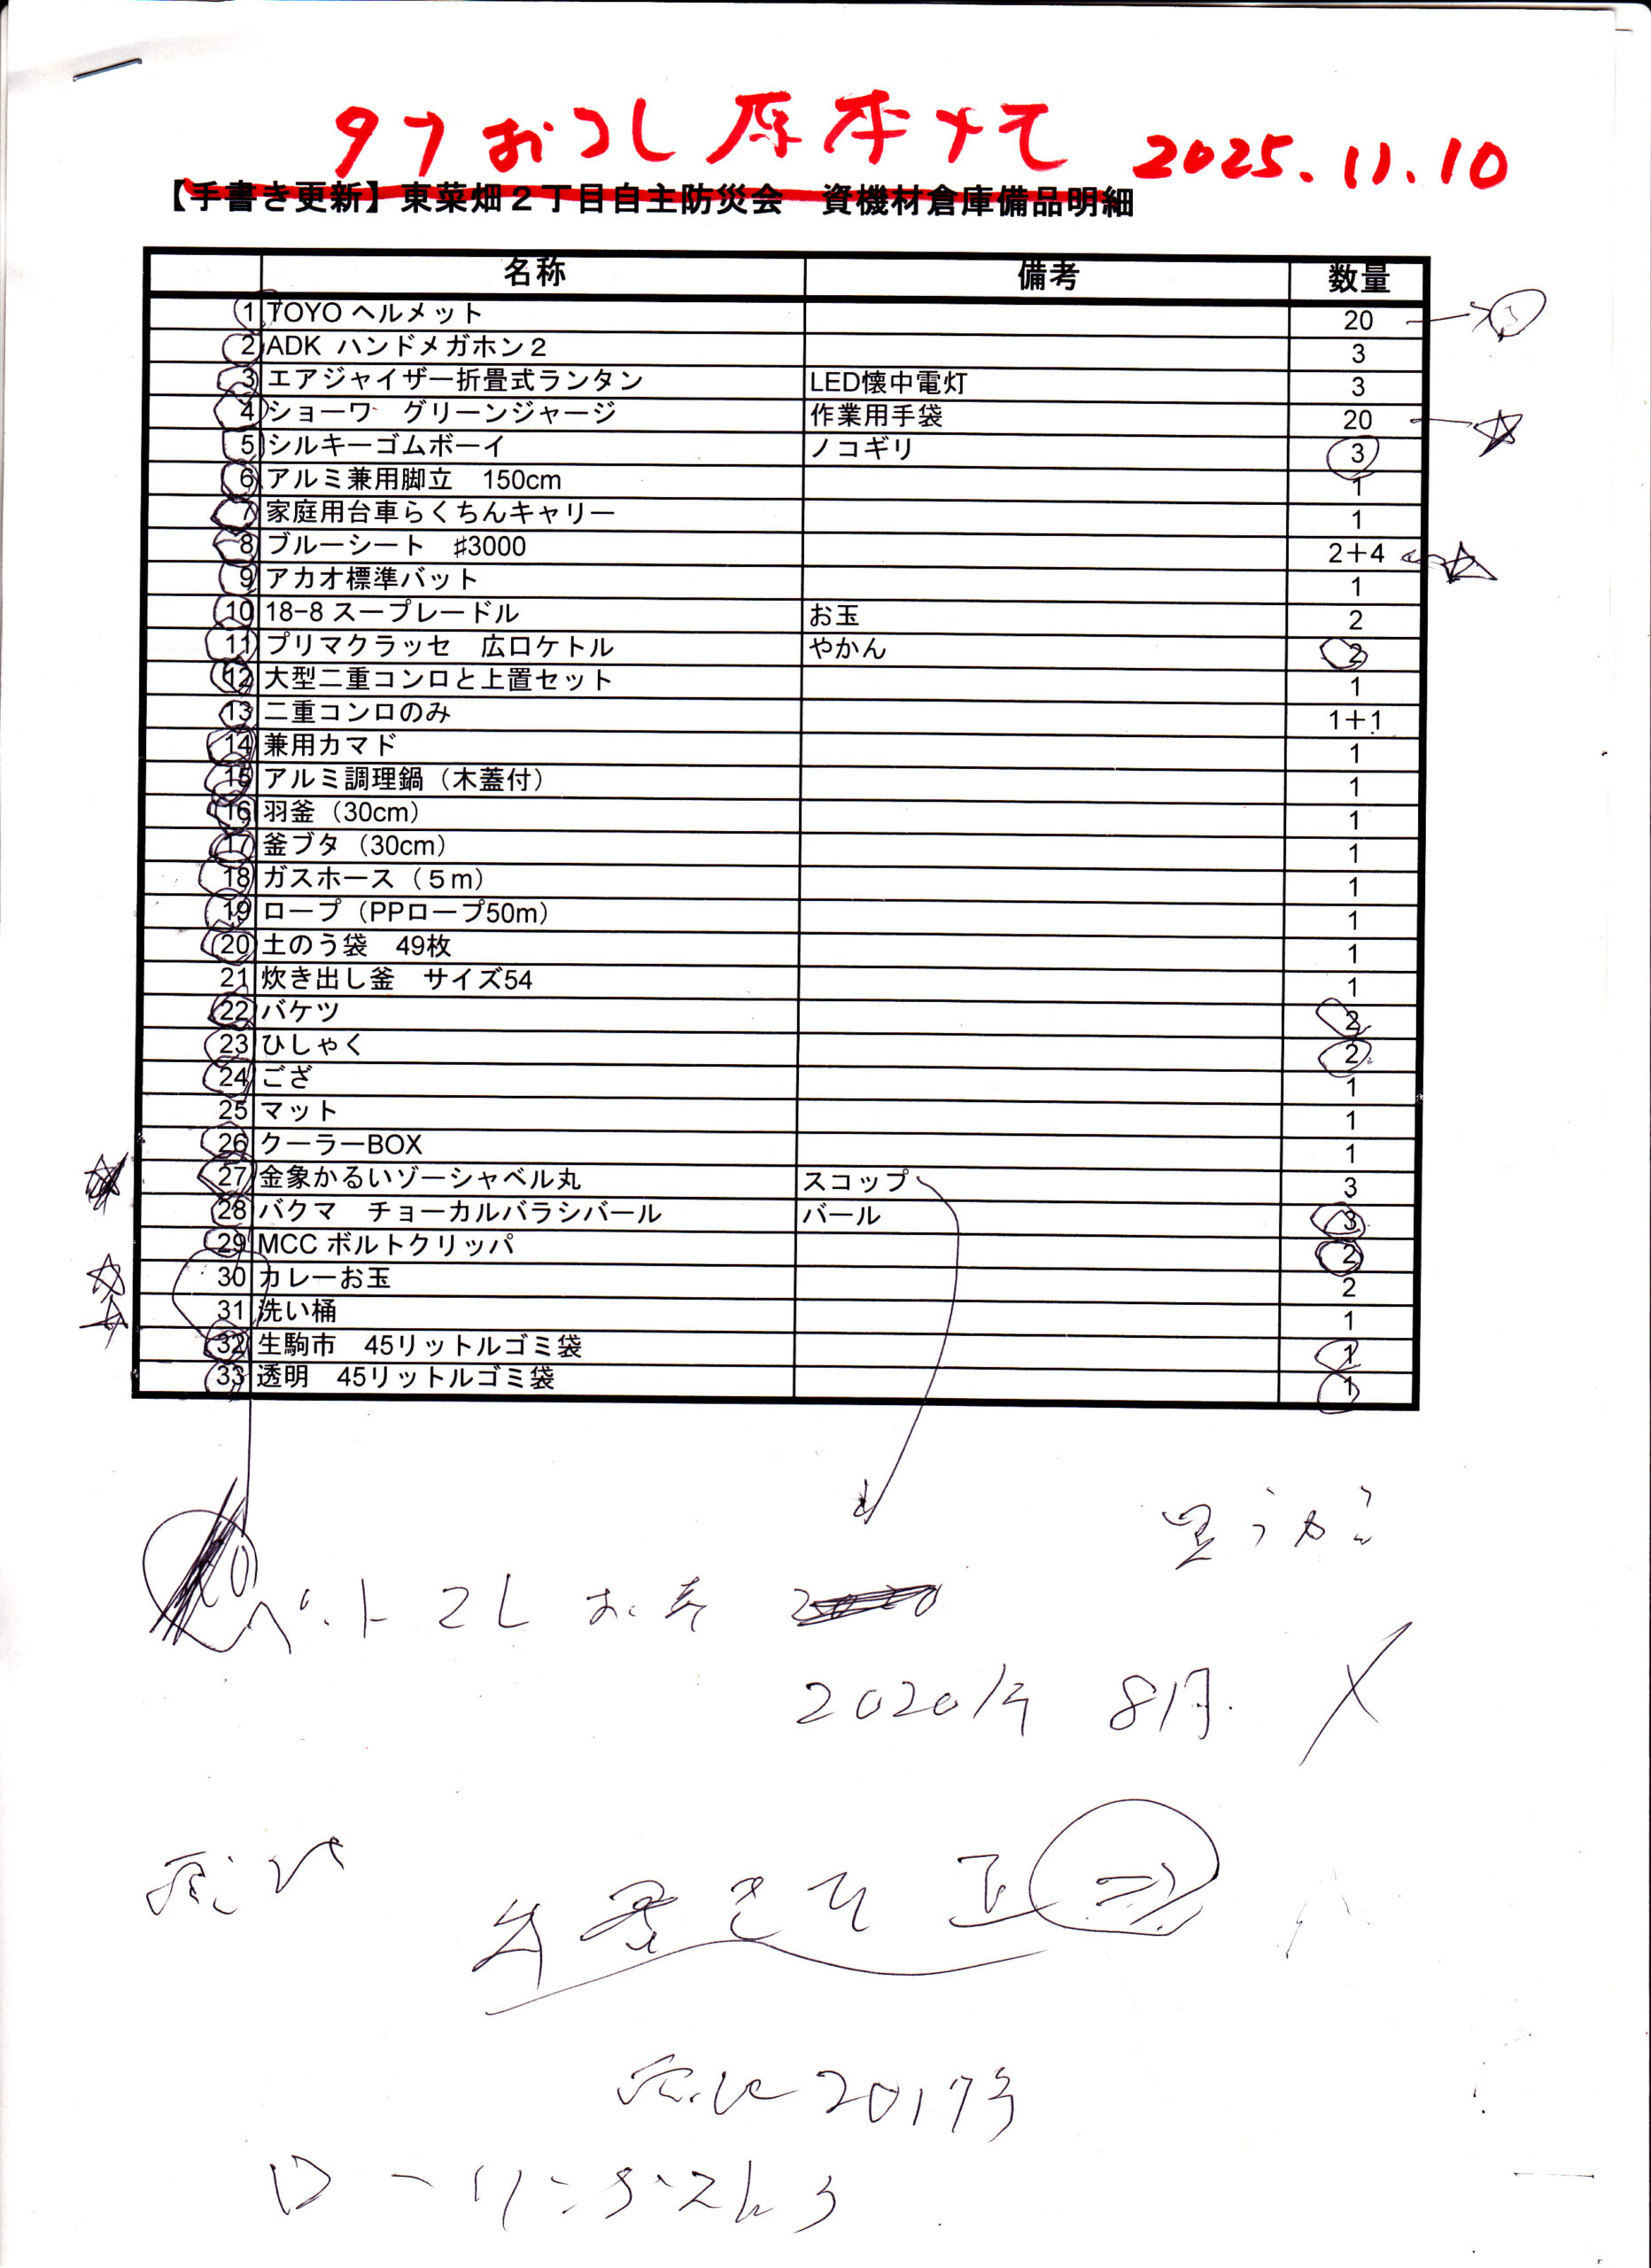 タナおろし原本メモ 2025.11.10
【手書き更新】東菜畑２丁目自主防災会　資機材倉庫備品明細
名称 備考 数量
1 TOYO ヘルメット 20
2 ADK ハンドメガホン２ 3
3 エアジャイザー折畳式ランタン LED懐中電灯 3
4 ショーワ　グリーンジャージ 作業用手袋 20
5 シルキーゴムボーイ ノコギリ 3
6 アルミ兼用脚立　150cm 1
7 家庭用台車らくちんキャリー 1
8 ブルーシート　♯3000 2＋4
9 アカオ標準バット 1
10 18-8 スープレードル お玉 2
11 プリマクラッセ　広口ケトル やかん 2
12 大型二重コンロと上置セット 1
13 二重コンロのみ 1＋1
14 兼用カマド 1
15 アルミ調理鍋（木蓋付） 1
16 羽釜（30cm） 1
17 釜ブタ（30cm） 1
18 ガスホース（５m） 1
19 ロープ（PPロープ50m） 1
20 土のう袋　49枚 1
21 炊き出し釜　サイズ54 1
22 バケツ 2
23 ひしゃく 2
24 ござ 1
25 マット 1
26 クーラーBOX 1
27 金象かるいゾーシャベル丸 スコップ 3
28 バクマ　チョーカルバラシバール バール 3
29 MCC ボルトクリッパ 2
30 カレーお玉 2
31 洗い桶 1
32 生駒市　45リットルゴミ袋 1
33 透明　45リットルゴミ袋 1
2020年 8月
2017年